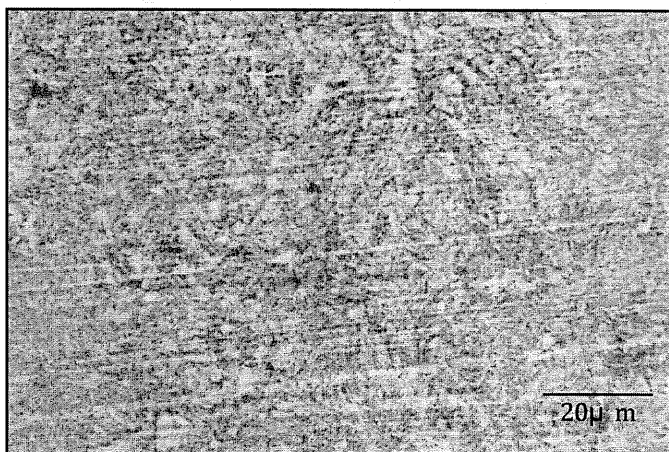 20μ m